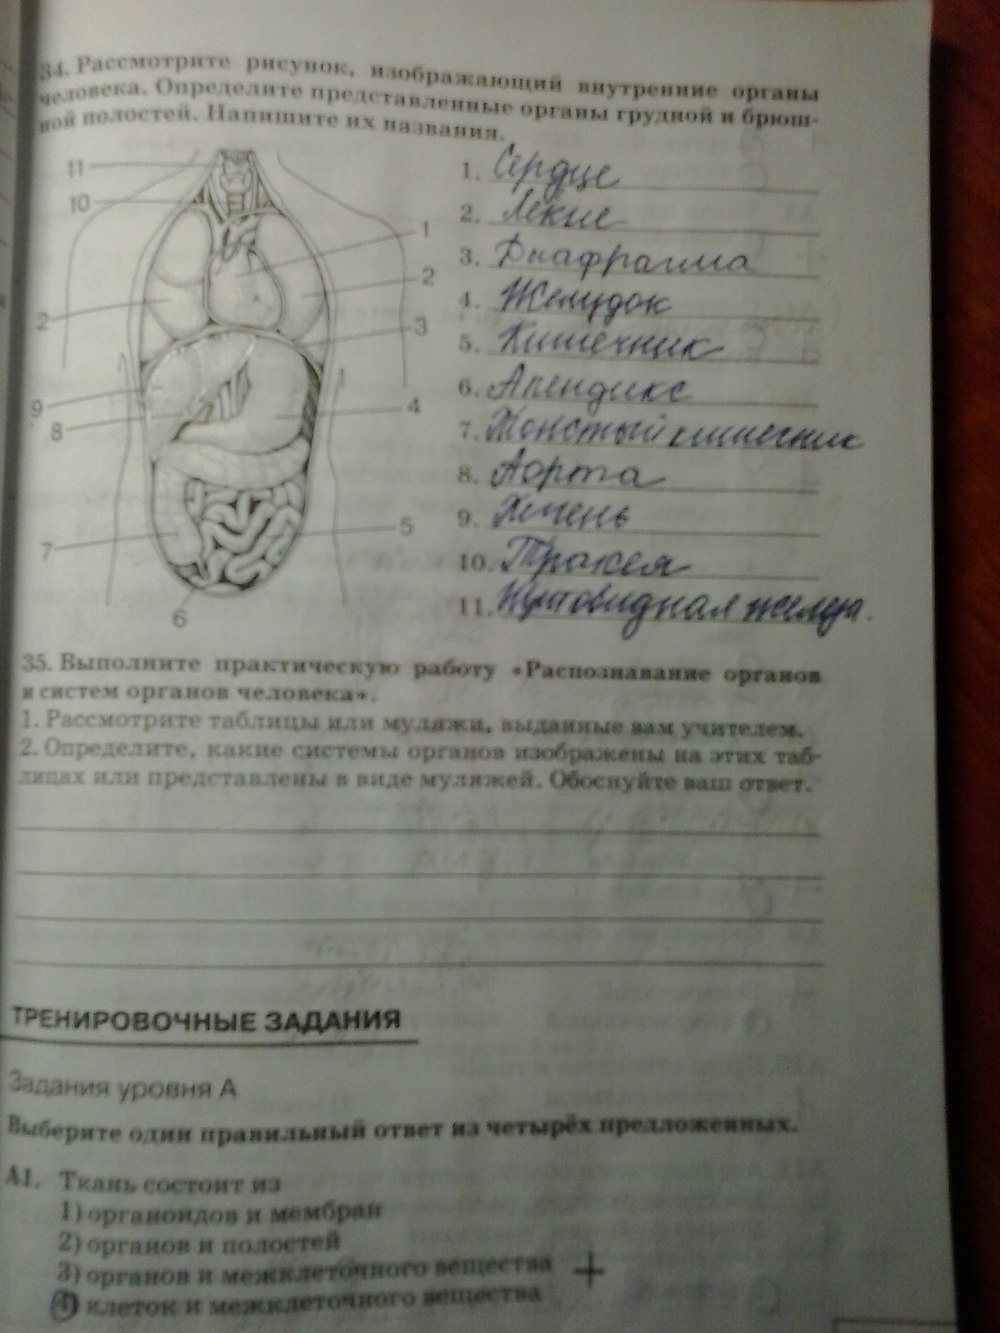 34. Рассмотрите рисунок, изображающий внутренние органы
человека. Определите представленные органы грудной и брюш-
ной полостей. Напишите их названия.
11
10
1
2
2
3
9
8
4
7
5
6
1. Сердце
2. Лёкие
3. Диафрагма
4. Желудок
5. Кишечник
6. Апендикс
7. Тонстый кишечник
8. Аорта
9. Печень
10. Трахея
11. Щитовидная железа.
35. Выполните практическую работу «Распознавание органов
и систем органов человека».
1. Рассмотрите таблицы или муляжи, выданные вам учителем.
2. Определите, какие системы органов изображены на этих таб-
лицах или представлены в виде муляжей. Обоснуйте ваш ответ.
ТРЕНИРОВОЧНЫЕ ЗАДАНИЯ
Задания уровня А
Выберите один правильный ответ из четырёх предложенных.
А1. Ткань состоит из
1) органоидов и мембран
2) органов и полостей
3) органов и межклеточного вещества +
4) клеток и межклеточного вещества